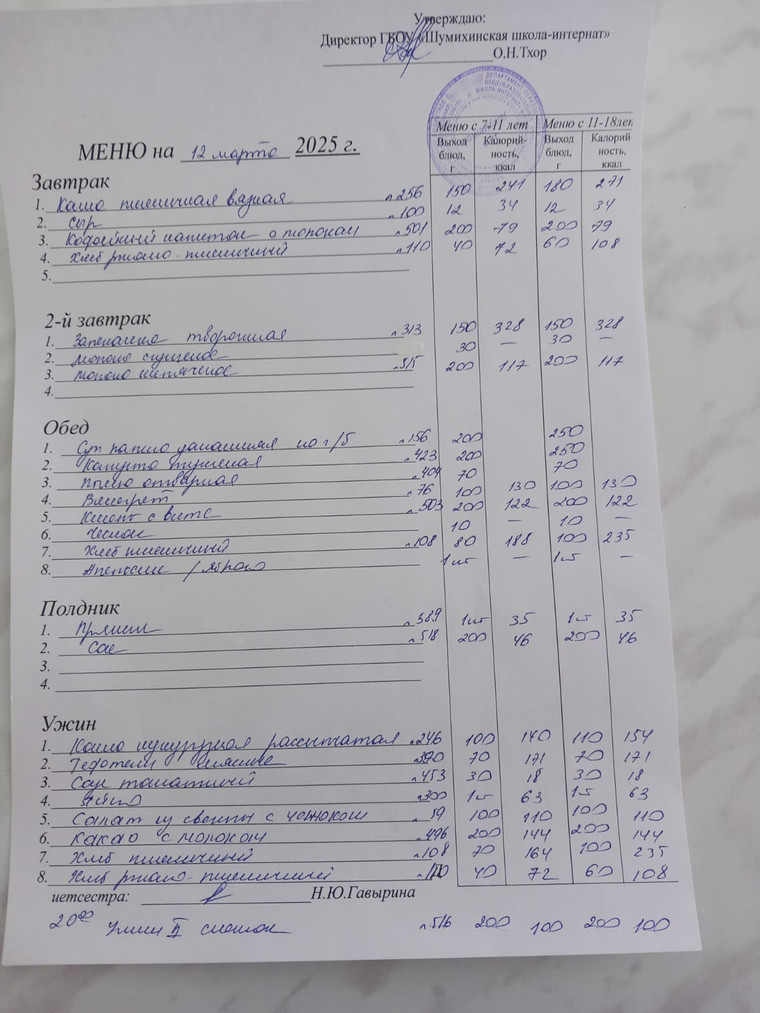 Утверждаю:
Директор ГБОУ «Шумихинская школа-интернат»
О.Н.Тхор
Меню с 7-11 лет Меню с 11-18лет
МЕНЮ на 12 марта 2025 г.
Выход блюд, г Калорий-ность, ккал Выход блюд, г Калорий ность, ккал
Завтрак
1. Каша пшеничная вязкая п256 150 241 180 271
2. сыр п100 12 34 12 34
3. Кофейный напиток с молоком п501 200 79 200 79
4. Хлеб ржано-пшеничный п110 40 72 60 108
5.
2-й завтрак
1. Запеканка творожная п313 150 328 150 328
2. молоко сгущеное 30 — 30 —
3. молоко кипяченое п515 200 117 200 117
4.
Обед
1. Суп лапша домашняя на г/б п156 200 250
2. Капуста тушеная п423 200 250
3. отварная п404 70 70
4. Винегрет п76 100 130 100 130
5. Компот с вит с п503 200 122 200 122
6. Чеснок 10 — 10 —
7. Хлеб пшеничный п108 80 188 100 235
8. Апельсин / яблоко 1шт — 1шт —
Полдник
1. Пряник п589 1шт 35 1шт 35
2. Сок п518 200 46 200 46
3.
4.
Ужин
1. Каша кукурузная рассыпчатая п246 100 140 110 154
2. Тефтели мясные 70 171 70 171
3. Соус томатный п453 30 18 30 18
4. яйцо п300 1шт 63 1шт 63
5. Салат из свеклы с чесноком п59 100 110 100 110
6. Какао с молоком п496 200 144 200 144
7. Хлеб пшеничный п108 70 164 100 235
8. Хлеб ржано-пшеничный п110 40 72 60 108
иетсестра: Н.Ю.Гавырина
20 00 Ужин II снежок п516 200 100 200 100